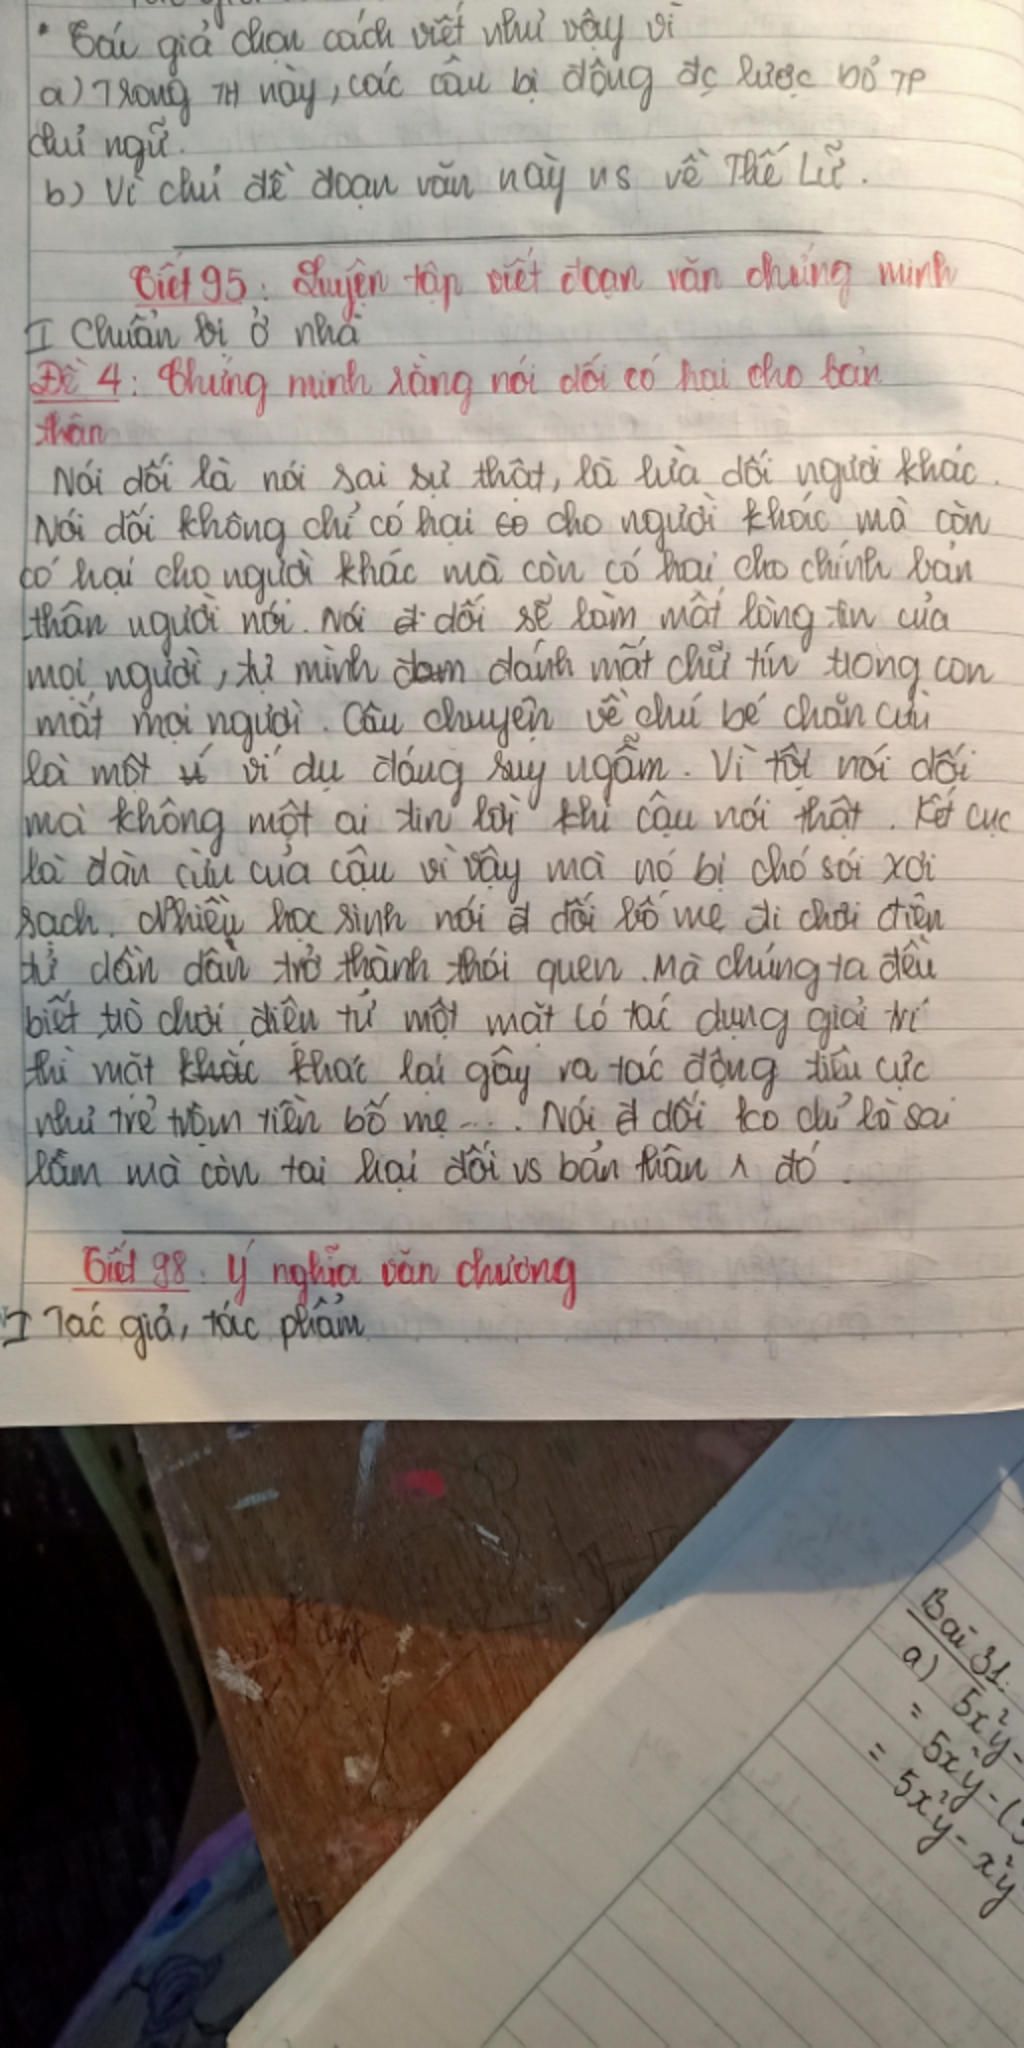 • Tác giả chọn cách viết như vậy vì
a) Trong TH này, các câu bị động đc lược bỏ TP
chủ ngữ.
b) Vì chủ đề đoạn văn này ns về Thế Lữ.
Tiết 95: Luyện tập viết đoạn văn chứng minh
I Chuẩn bị ở nhà
Đề 4: Chứng minh rằng nói dối có hại cho bản
thân
Nói dối là nói sai sự thật, là lừa dối người khác.
Nói dối không chỉ có hại cho người khác mà còn
có hại cho người khác mà còn có hại cho chính bản
thân người nói. Nói dối sẽ làm mất lòng tin của
mọi người, tự mình đánh mất chữ tín trong con
mắt mọi người. Câu chuyện về chú bé chăn cừu
là một ví dụ đáng suy ngẫm. Vì tật nói dối
mà không một ai tin lời khi cậu nói thật. Kết cục
là đàn cừu của cậu vì vậy mà nó bị chó sói xơi
sạch. Nhiều học sinh nói dối bố mẹ đi chơi điện
tử dần dần trở thành thói quen. Mà chúng ta đều
biết trò chơi điện tử một mặt có tác dụng giải trí
thì mặt khác lại gây ra tác động tiêu cực
như trẻ trộm tiền bố mẹ.... Nói dối ko chỉ là sai
lầm mà còn tai hại đối vs bản thân đó.
Tiết 98. Ý nghĩa văn chương
I Tác giả, tác phẩm
Bài 31:
a) 5x²y-
= 5x²y-(
= 5x²y-x²y